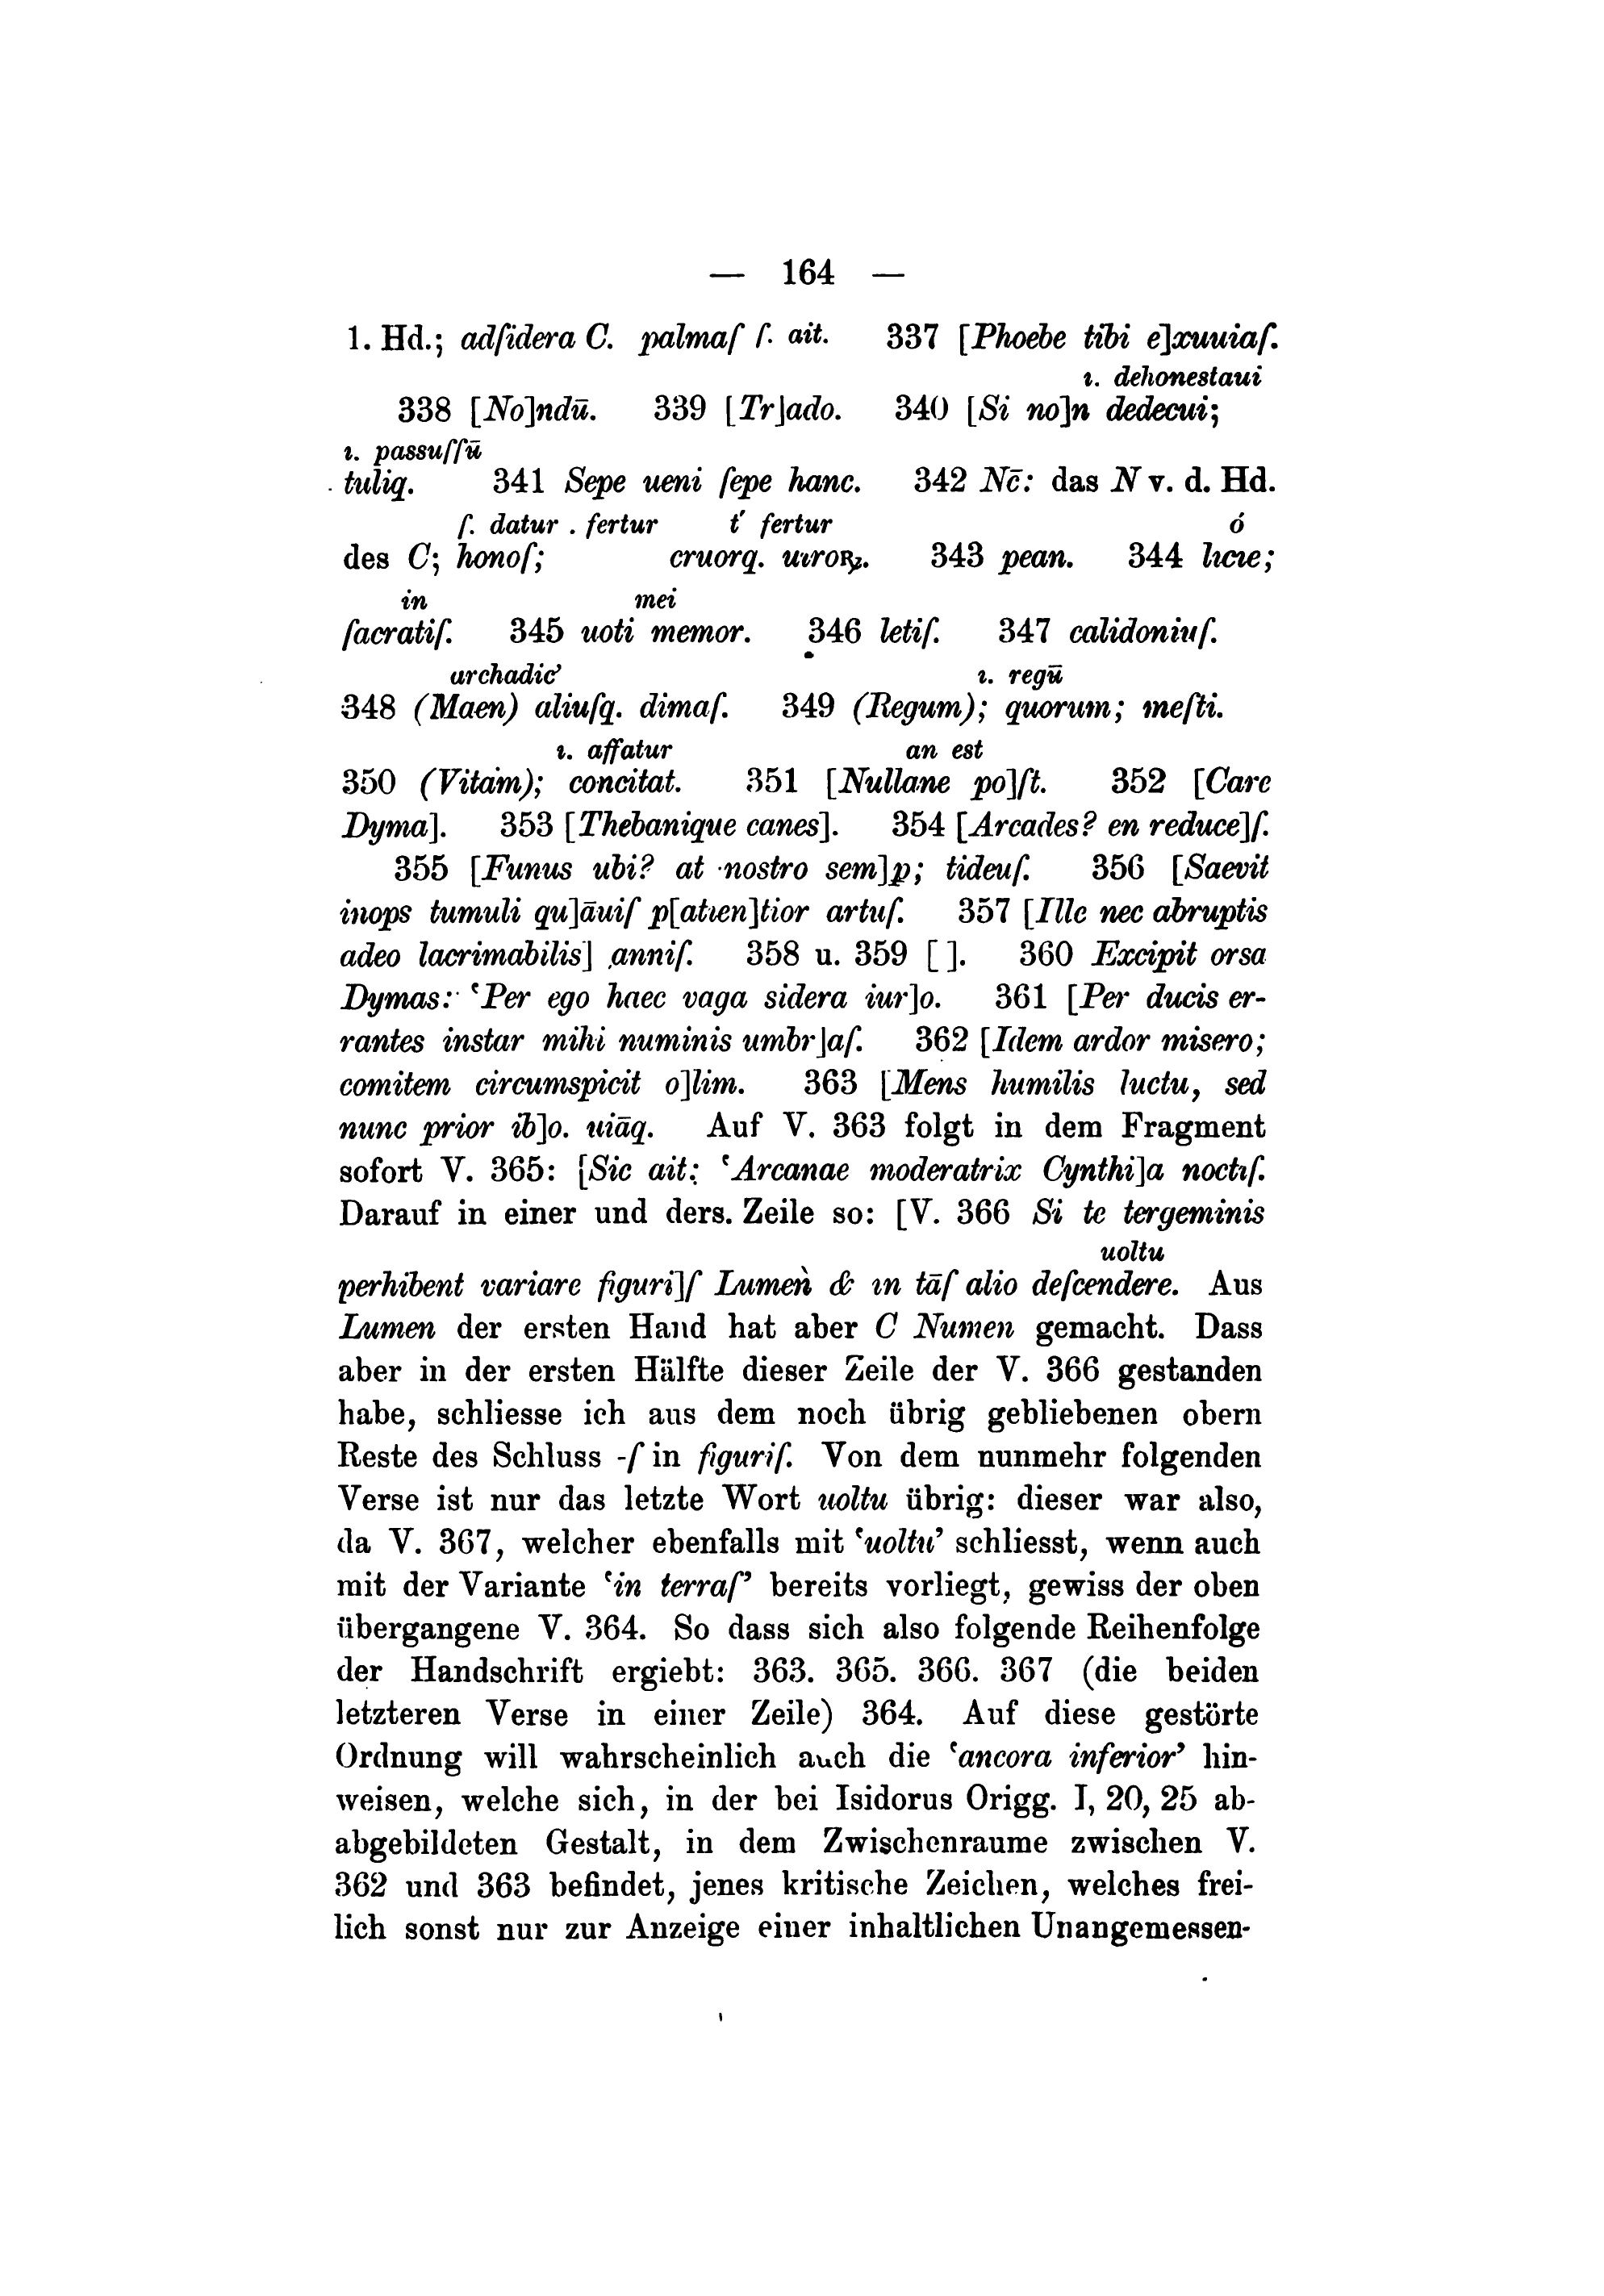 — 164 —
1. Hd.; adſidera C. palmaſ ſ. ait. 337 [Phoebe tibi e]xuuiaſ.
ı. dehonestaui
338 [No]ndū. 339 [Tr]ado. 340 [Si no]n dedecui;
ı. passuſſū
tuliq. 341 Sepe ueni ſepe hanc. 342 Nc̄: das N v. d. Hd.
ſ. datur . fertur t' fertur ó
des C; honoſ; cruorq. uıroꝝ. 343 pean. 344 lıcıe;
in mei
ſacratiſ. 345 uoti memor. 346 letiſ. 347 calidoniuſ.
archadic’ ı. regū
348 (Maen) aliuſq. dimaſ. 349 (Regum); quorum; meſti.
ı. affatur an est
350 (Vitam); concitat. 351 [Nullane po]ſt. 352 [Care
Dyma]. 353 [Thebanique canes]. 354 [Arcades? en reduce]ſ.
355 [Funus ubi? at nostro sem]p; tideuſ. 356 [Saevit
inops tumuli qu]āuiſ p[atıen]tior artuſ. 357 [Ille nec abruptis
adeo lacrimabilis] anniſ. 358 u. 359 [ ]. 360 Excipit orsa
Dymas: ‘Per ego haec vaga sidera iur]o. 361 [Per ducis er-
rantes instar mihi numinis umbr]aſ. 362 [Idem ardor misero;
comitem circumspicit o]lim. 363 [Mens humilis luctu, sed
nunc prior ib]o. uiāq. Auf V. 363 folgt in dem Fragment
sofort V. 365: [Sic ait: ‘Arcanae moderatrix Cynthi]a noctıſ.
Darauf in einer und ders. Zeile so: [V. 366 Si te tergeminis
uoltu
perhibent variare figuri]ſ Lumeǹ & ın tāſ alio deſcendere. Aus
Lumen der ersten Hand hat aber C Numen gemacht. Dass
aber in der ersten Hälfte dieser Zeile der V. 366 gestanden
habe, schliesse ich aus dem noch übrig gebliebenen obern
Reste des Schluss -ſ in figuriſ. Von dem nunmehr folgenden
Verse ist nur das letzte Wort uoltu übrig: dieser war also,
da V. 367, welcher ebenfalls mit ‘uoltu’ schliesst, wenn auch
mit der Variante ‘in terraſ’ bereits vorliegt, gewiss der oben
übergangene V. 364. So dass sich also folgende Reihenfolge
der Handschrift ergiebt: 363. 365. 366. 367 (die beiden
letzteren Verse in einer Zeile) 364. Auf diese gestörte
Ordnung will wahrscheinlich auch die ‘ancora inferior’ hin-
weisen, welche sich, in der bei Isidorus Origg. I, 20, 25 ab-
abgebildeten Gestalt, in dem Zwischenraume zwischen V.
362 und 363 befindet, jenes kritische Zeichen, welches frei-
lich sonst nur zur Anzeige einer inhaltlichen Unangemessen-